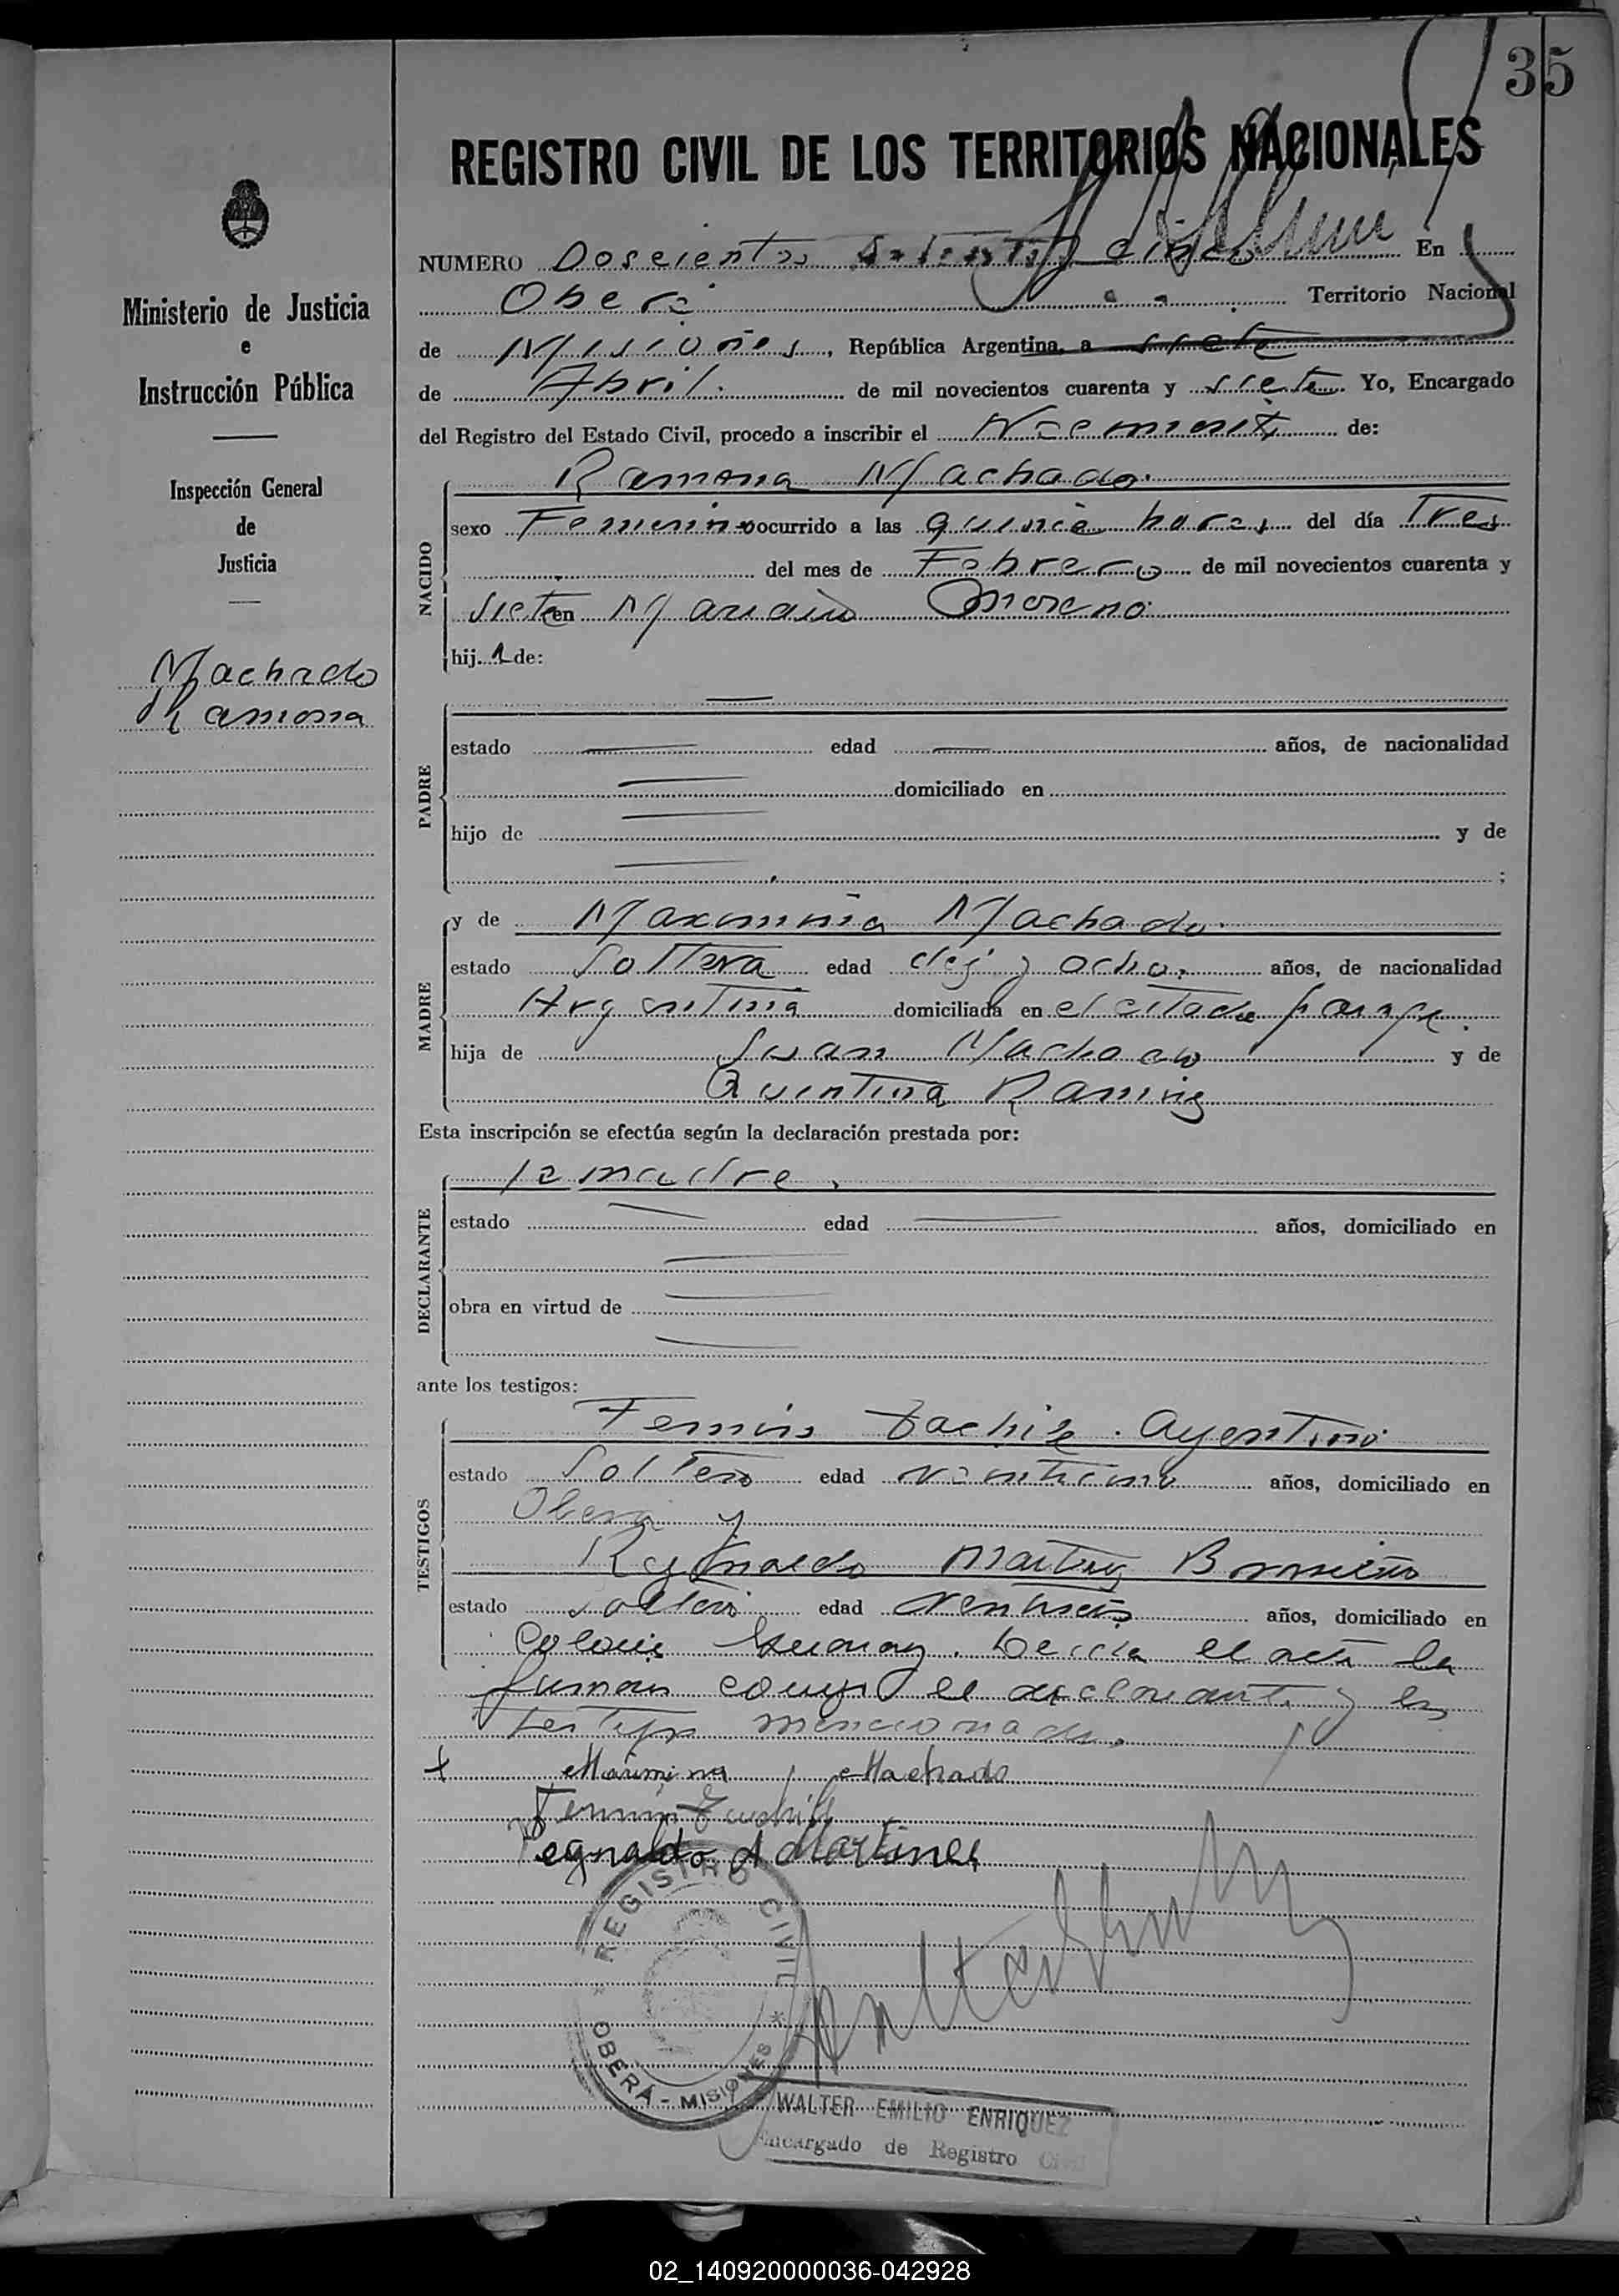 35
REGISTRO CIVIL DE LOS TERRITORIOS NACIONALES
NUMERO Doscientos y cinco En
Oberá Territorio Nacional
de Misiones, República Argentina, a siete
de Abril. de mil novecientos cuarenta y siete Yo, Encargado
del Registro del Estado Civil, procedo a inscribir el de:
Ramona Machado.
NACIDO
sexo Femenino ocurrido a las quince horas del día Tres
del mes de Febrero de mil novecientos cuarenta y
siete en Mariano Moreno.
hij a de:
PADRE
estado edad años, de nacionalidad
domiciliado en
hijo de y de
;
MADRE
y de Maximina Machado.
estado Soltera edad diez y ocho. años, de nacionalidad
Argentina domiciliada en el citado paraje.
hija de Juan Machado y de
Quintina Ramirez
Esta inscripción se efectúa según la declaración prestada por:
DECLARANTE
la madre.
estado edad años, domiciliado en
obra en virtud de
ante los testigos:
TESTIGOS
Fermin Argentino
estado Soltero edad años, domiciliado en
Oberá y
Reginaldo Martinez
estado soltero edad años, domiciliado en
Colonia Leida el acta la
firman conmigo el declarante y los
testigos mencionados.
x Máximina Machado
Fermin
Regnaldo A Martines
REGISTRO CIVIL
* OBERÁ - MISIONES *
WALTER EMILIO ENRIQUEZ
Encargado de Registro Civil
Ministerio de Justicia
e
Instrucción Pública
Inspección General
de
Justicia
Machado
Ramona
02_140920000036-042928